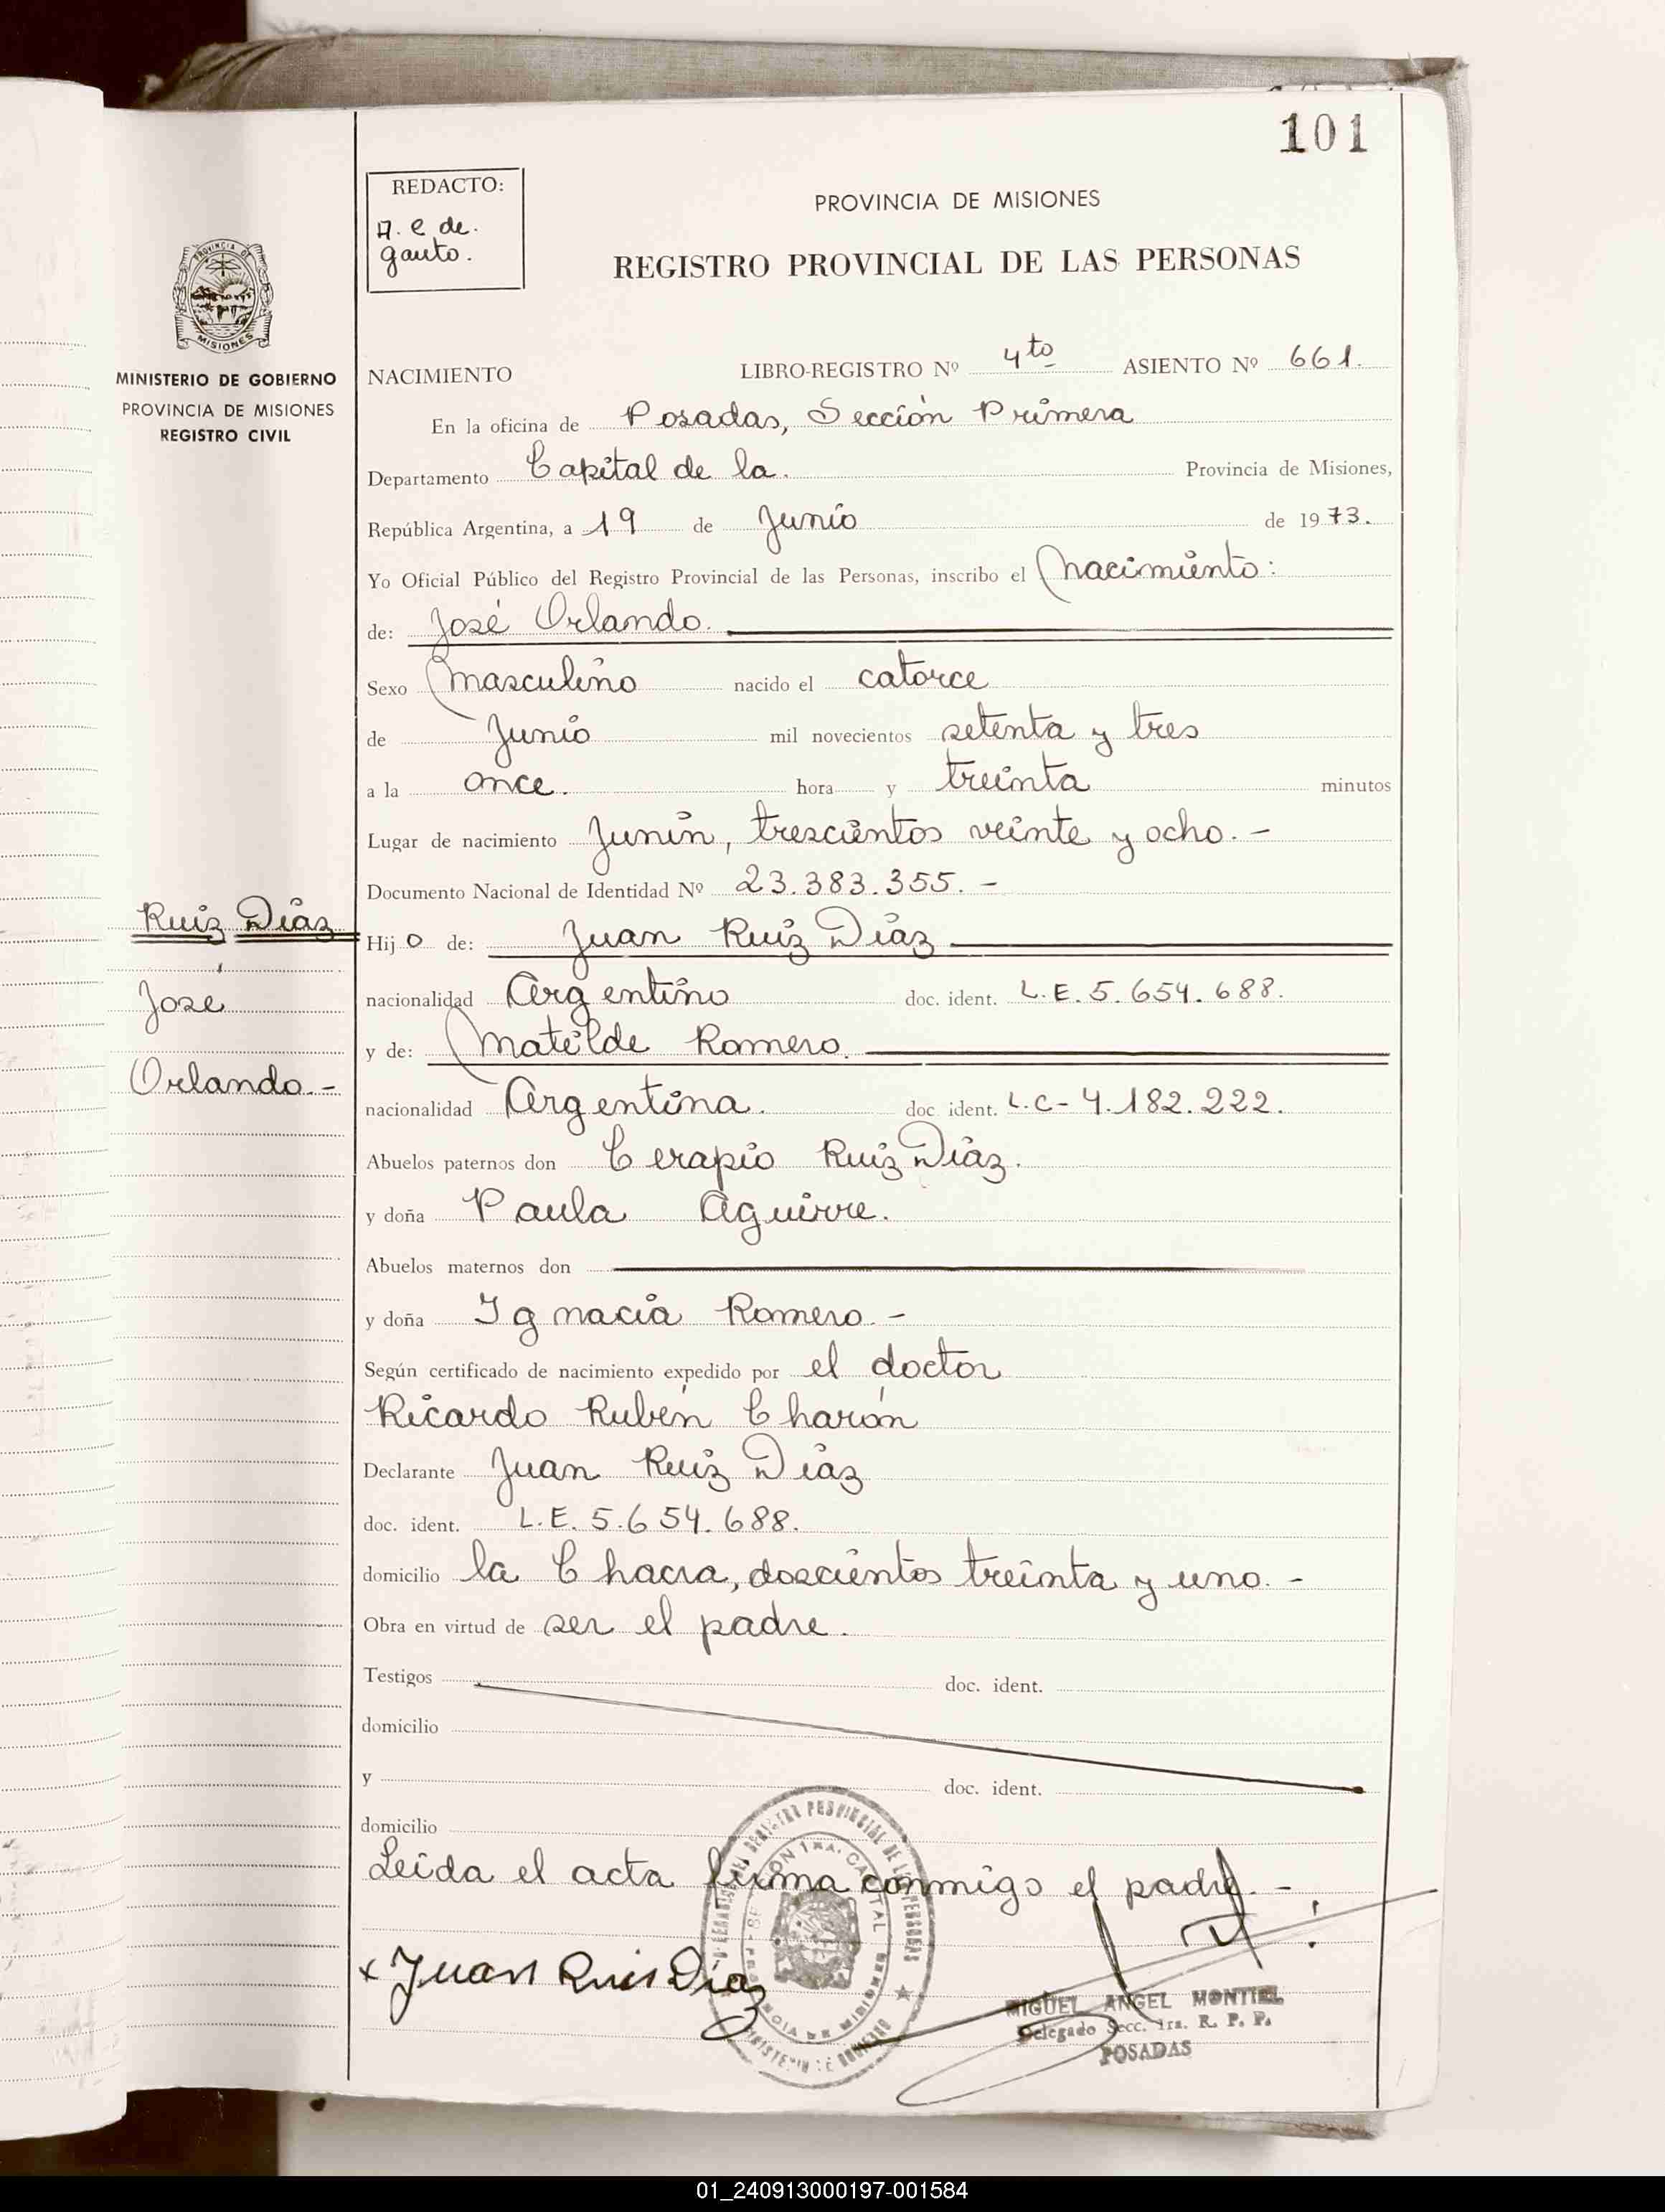 101
REDACTO:
A. e de.
gauto.
PROVINCIA DE MISIONES
REGISTRO PROVINCIAL DE LAS PERSONAS
PROVINCIA DE
MISIONES
MINISTERIO DE GOBIERNO
PROVINCIA DE MISIONES
REGISTRO CIVIL
NACIMIENTO LIBRO-REGISTRO Nº 4to ASIENTO Nº 661.
En la oficina de Posadas, Sección Primera
Departamento Capital de la. Provincia de Misiones,
República Argentina, a 19 de Junio de 1973.
Yo Oficial Público del Registro Provincial de las Personas, inscribo el Nacimiento:
de: José Orlando.
Sexo Masculino nacido el catorce
de Junio mil novecientos setenta y tres
a la once. hora y treinta minutos
Lugar de nacimiento Junín, trescientos veinte y ocho. -
Documento Nacional de Identidad Nº 23.383.355. -
Ruiz Díaz
José
Orlando. -
Hijo de: Juan Ruiz Díaz
nacionalidad Argentino doc. ident. L.E. 5.654.688.
y de: Matilde Romero.
nacionalidad Argentina. doc. ident. L.C- 4.182.222.
Abuelos paternos don Cerapio Ruiz Díaz.
y doña Paula Aguirre.
Abuelos maternos don
y doña Ignacia Romero. -
Según certificado de nacimiento expedido por el doctor
Ricardo Rubén Charón
Declarante Juan Ruiz Díaz
doc. ident. L.E. 5.654.688.
domicilio la Chacra, doscientos treinta y uno. -
Obra en virtud de ser el padre.
Testigos doc. ident.
domicilio
y doc. ident.
domicilio
Leída el acta firma conmigo el padre. -
x Juan Ruis Diaz
MIGUEL ANGEL MONTIEL
Delegado Secc. 1ra. R. P. P.
POSADAS
01_240913000197-001584